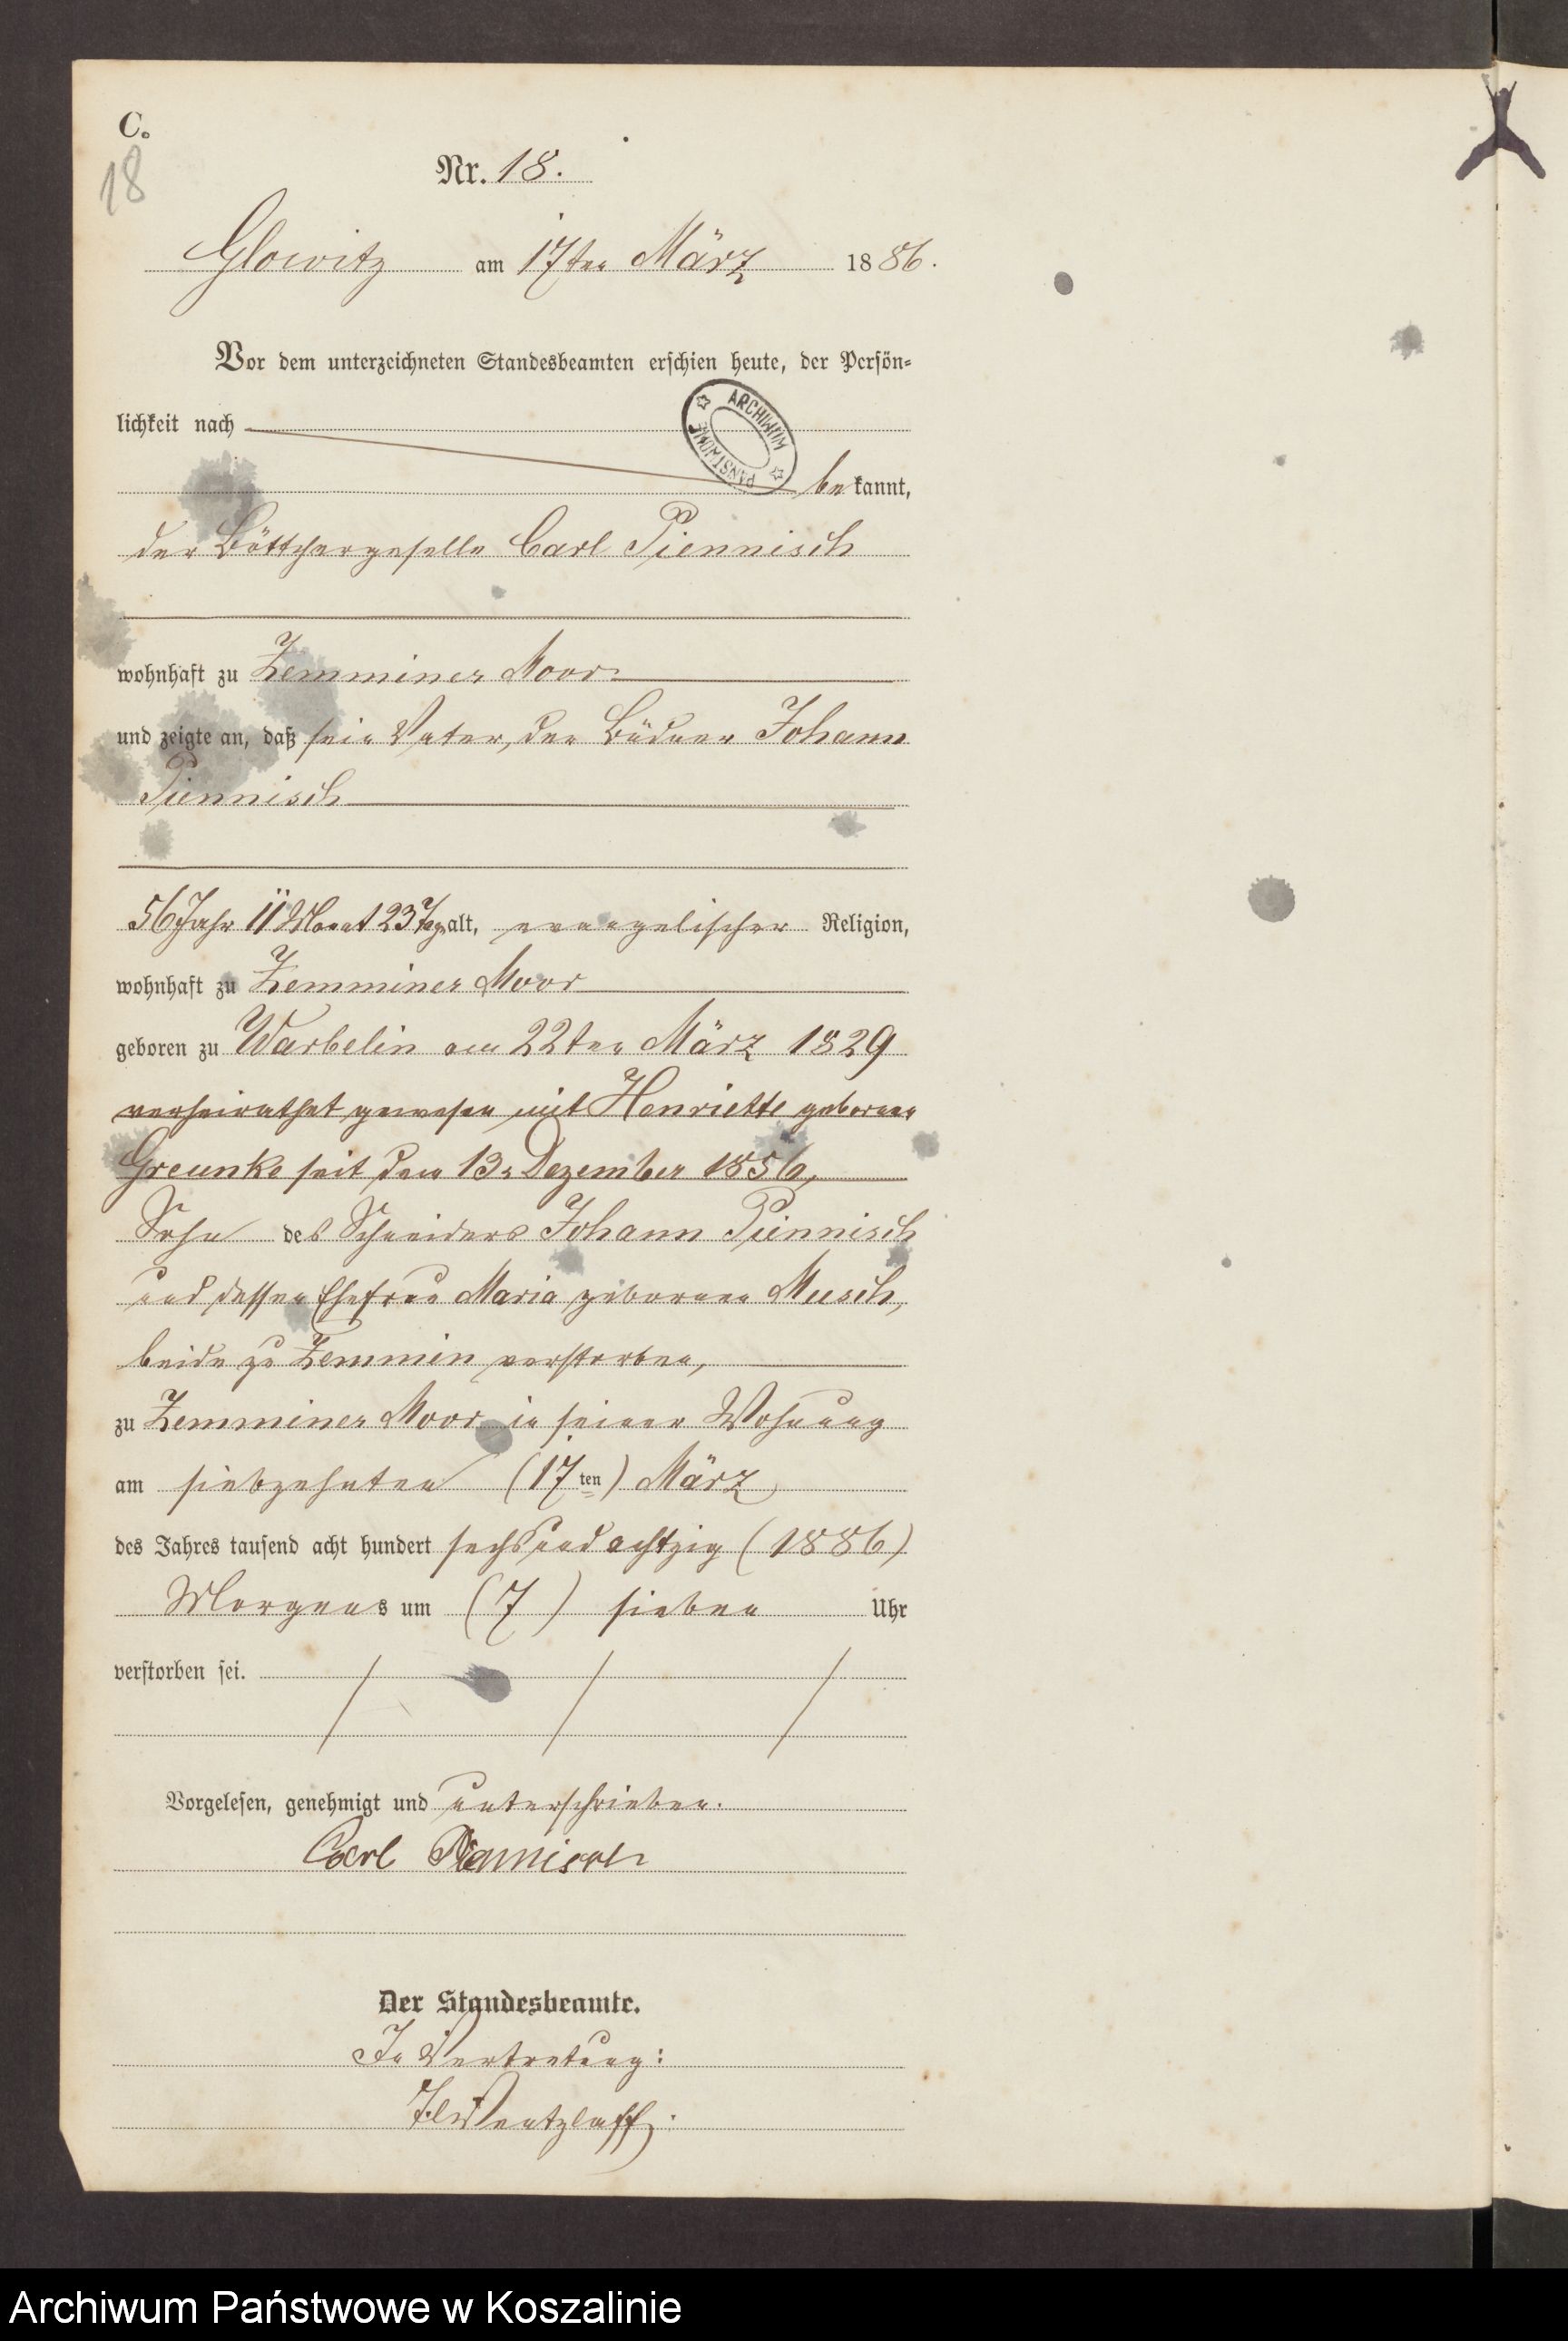 C.
18
Nr. 18.
Glowitz am 17ten März 1886.
Vor dem unterzeichneten Standesbeamten erschien heute, der Persön-
lichkeit nach
ARCHIWUM PAŃSTWOWE
bekannt,
der Böttchergeselle Carl Piennisch
wohnhaft zu Zemminer Moor
und zeigte an, daß sein Vater, der Büdner Johann
Piennisch
56 Jahr 11 Monat 23 Tag alt, evangelischer Religion,
wohnhaft zu Zemminer Moor
geboren zu Warbelin am 22ten März 1829
verheirathet gewesen mit Henriette geborene
Greunke seit dem 13. Dezember 1856,
Sohn des Schneiders Johann Piennisch
und dessen Ehefrau Maria geborene Musch,
beide zu Zemmin verstorben,
zu Zemminer Moor in seiner Wohnung
am siebzehnten (17ten) März
des Jahres tausend acht hundert sechsundachtzig (1886)
Morgens um (7) sieben Uhr
verstorben sei.
Vorgelesen, genehmigt und unterschrieben.
Carl
Der Standesbeamte.
In Vertretung:
Wentzlaff.
Archiwum Państwowe w Koszalinie